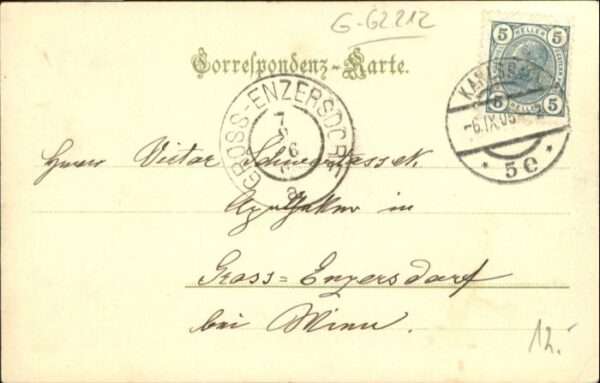 G-62212
Correspondenz-Karte.
5 HELLER 5
5 HELLER 5
-6.IX.05
* 5C *
GROSS-ENZERSDORF
7
9
6
a
Herrn Victor
Apotheker in
Gross=Enzersdorf
bei Wien.
12.-